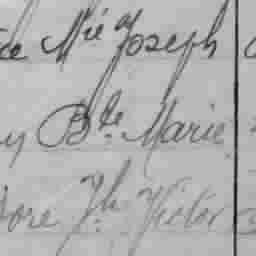 Mie Joseph
Bte Marie
Jh Victor